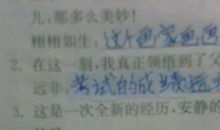 儿,那多么美妙!
栩栩如生:这个画家画画
2. 在这一刻,我真正领悟到了父
远非:考试的成绩远
3. 这是一次全新的经历,安静的